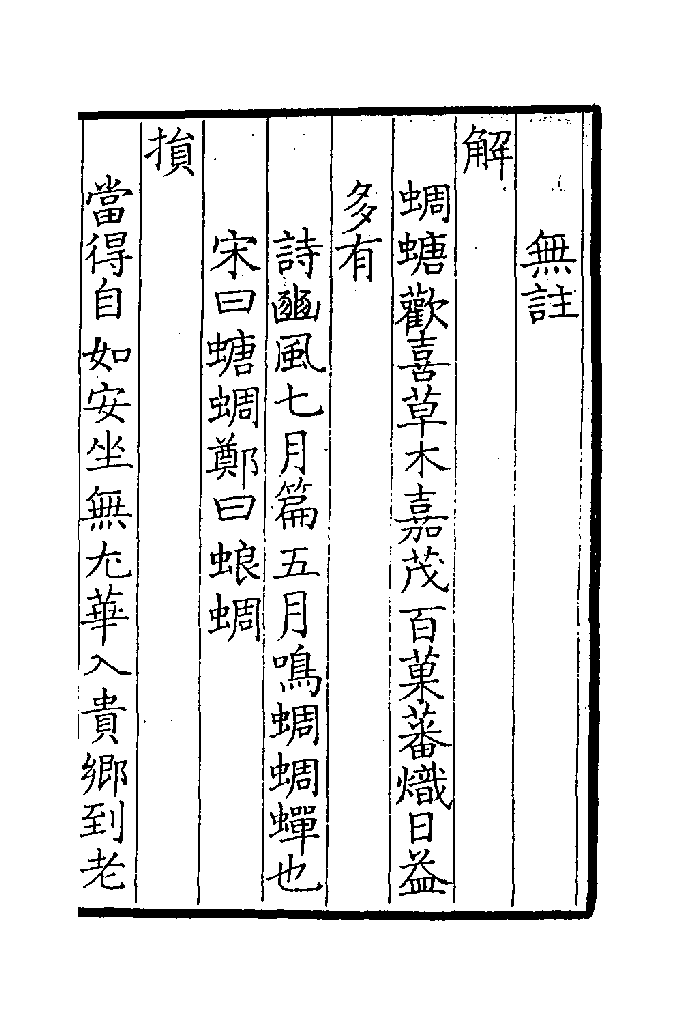 無註
解
蜩螗歡喜草木嘉茂百菓蕃熾日益
多有
詩豳風七月篇五月鳴蜩蜩蟬也
宋曰螗蜩鄭曰蜋蜩
損
當得自如安坐無尤華入貴鄉到老